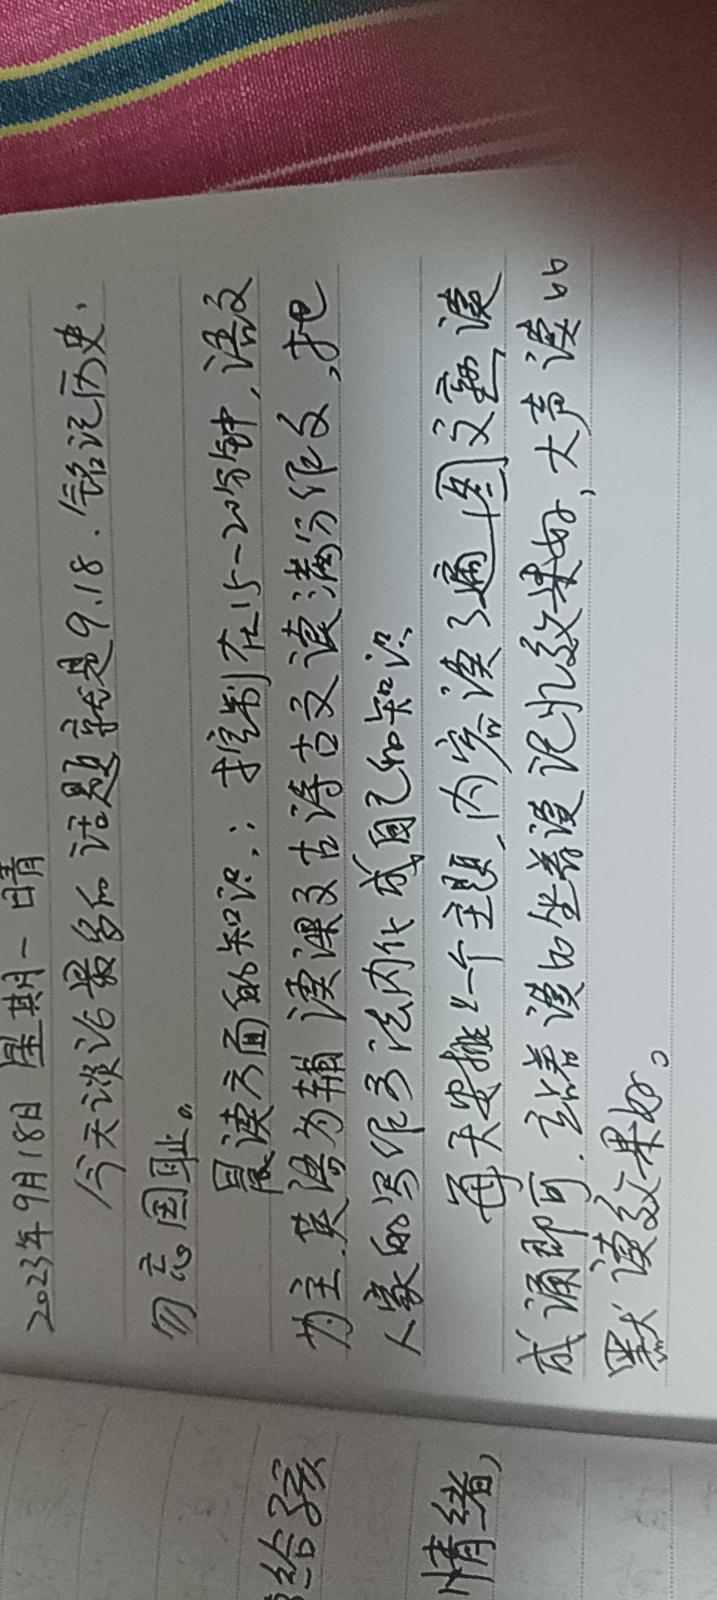 2023年9月18日 星期一 晴
今天谈论最多的话题就是9.18.铭记历史.
勿忘国耻。
晨读方面的知识:控制在15-20分钟,语文
为主.英语为辅 读课文古诗古文读满分作文,把
人家的写作方法内化成自己的知识
每天安排一个主题、内容读3遍 图文 读
成诵即可.站着读比坐着读记忆效果好,大声读比
默读效果好。
给孩
情绪,